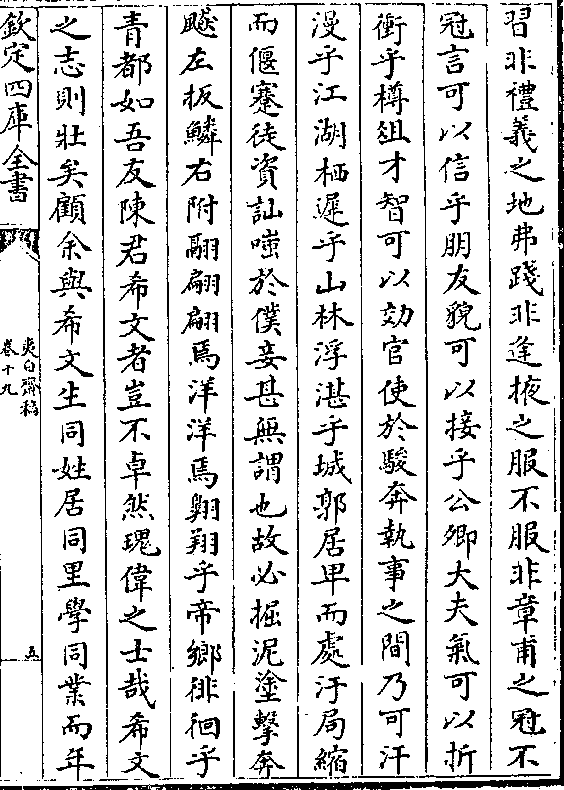 習非禮義之地弗踐非逢掖之服不服非章甫之冠不
冠言可以信乎朋友貌可以接乎公卿大夫氣可以折
衝乎樽俎才智可以效官使於駿奔執事之間乃可汗
漫乎江湖栖遲乎山林浮湛乎城郭居卑而處汙局縮
而偃蹇徒資訕嗤於僕妾甚無謂也故必掘泥塗擊奔
飈左扳鱗右附翮翩翩焉洋洋焉翱翔乎帝鄉徘徊乎
青都如吾友陳君希文者豈不卓然瑰偉之士哉希文
之志則壯矣顧余與希文生同姓居同里學同業而年
欽定四庫全書
夷白齋稿
卷十九
五